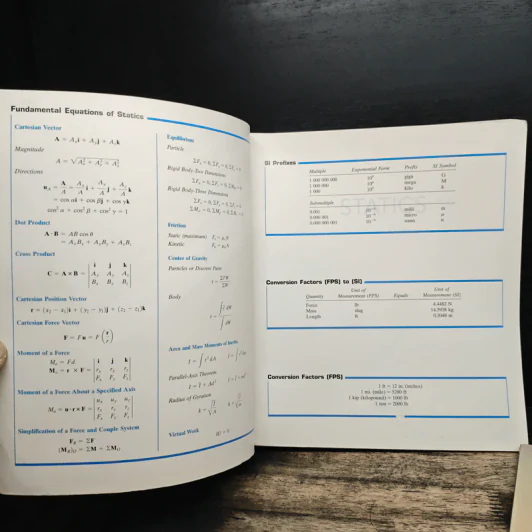 Fundamental Equations of Statics
Cartesian Vector
A = Aₓi + Aᵧj + A_zk
Magnitude
A = √(Aₓ² + Aᵧ² + A_z²)
Directions
u_A = A/A = Aₓ/A i + Aᵧ/A j + A_z/A k
= cos αi + cos βj + cos γk
cos² α + cos² β + cos² γ = 1
Dot Product
A · B = AB cos θ
= AₓBₓ + AᵧBᵧ + A_zB_z
Cross Product
i j k
C = A × B = Aₓ Aᵧ A_z
Bₓ Bᵧ B_z
Cartesian Position Vector
r = (x₂ − x₁)i + (y₂ − y₁)j + (z₂ − z₁)k
Cartesian Force Vector
F = Fu = F(r/r)
Moment of a Force
M_o = Fd
i j k
M_o = r × F = rₓ rᵧ r_z
Fₓ Fᵧ F_z
Moment of a Force About a Specified Axis
uₓ uᵧ u_z
M_a = u · r × F = rₓ rᵧ r_z
Fₓ Fᵧ F_z
Simplification of a Force and Couple System
F_R = ΣF
(M_R)_O = ΣM + ΣM_O
Equilibrium
Particle
ΣFₓ = 0, ΣFᵧ = 0, ΣF_z = 0
Rigid Body-Two Dimensions
ΣFₓ = 0, ΣFᵧ = 0, ΣM_O = 0
Rigid Body-Three Dimensions
ΣFₓ = 0, ΣFᵧ = 0, ΣF_z = 0
Friction
Static (maximum)
Kinetic
Center of Gravity
Particles or Discrete Parts
Body
Area and Mass Moments of Inertia
Parallel-Axis Theorem
Radius of Gyration
Virtual Work
δU = 0
SI Prefixes
Multiple Exponential Form Prefix SI Symbol
1 000 000 000 10⁹ giga G
1 000 000 10⁶ mega M
1 000 10³ kilo K
Submultiple
0.001 10⁻³ milli m
0.000 001 10⁻⁶ micro
0.000 000 001 10⁻⁹ nano n
STATICS
Conversion Factors (FPS) to (SI)
Unit of Unit of
Quantity Measurement (FPS) Equals Measurement (SI)
Force lb 4.4482 N
Mass slug 14.5938 kg
Length ft 0.3048 m
Conversion Factors (FPS)
1 ft = 12 in. (inches)
1 mi. (mile) = 5280 ft
1 kip (kilopound) = 1000 lb
1 ton = 2000 lb